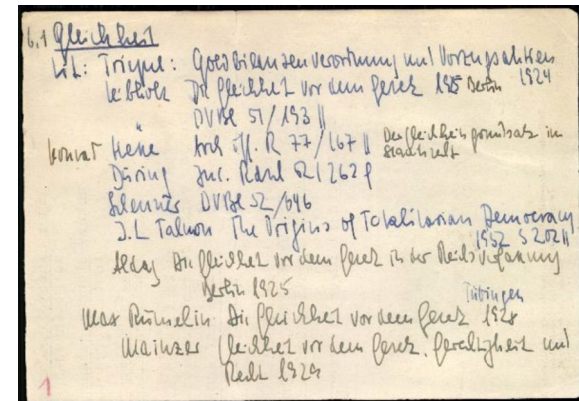 6.1 Gleichheit
Lit: Triepel: Goldbilanzenverordnung und Vorzugsaktien 1924
Leibholz Die Gleichheit vor dem Gesetz 1925 Berlin
" DVBl 51/193 ||
Konrad Hesse Arch öff. R 77/167 || Der Gleichheitsgrundsatz im Staatsrecht
Dürig Jur. Rdsch 52/262 f
Scheuner DVBl 52/646
J.L Talmon The Origins of Totalitarian Democracy
1952 S 202 ||
Aldag Die Gleichheit vor dem Gesetz in der Reichsverfassung
Berlin 1925
Max Rümelin Die Gleichheit vor dem Gesetz 1928 Tübingen
Mainzer Gleichheit vor dem Gesetz, Gerechtigkeit und
Recht 1929
1